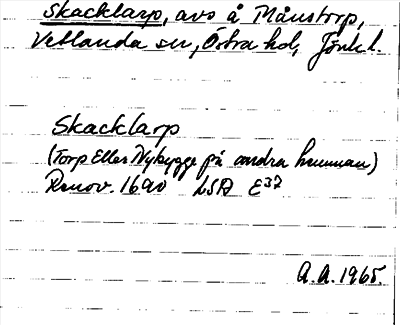 Skacklarp, avs å Månstorp,
Vetlanda sn, Östra hd, Jönk l.
Skacklarp
(Torp Eller Nybygge på andra
Renov. 1690 LSA E37
A.A. 1965.